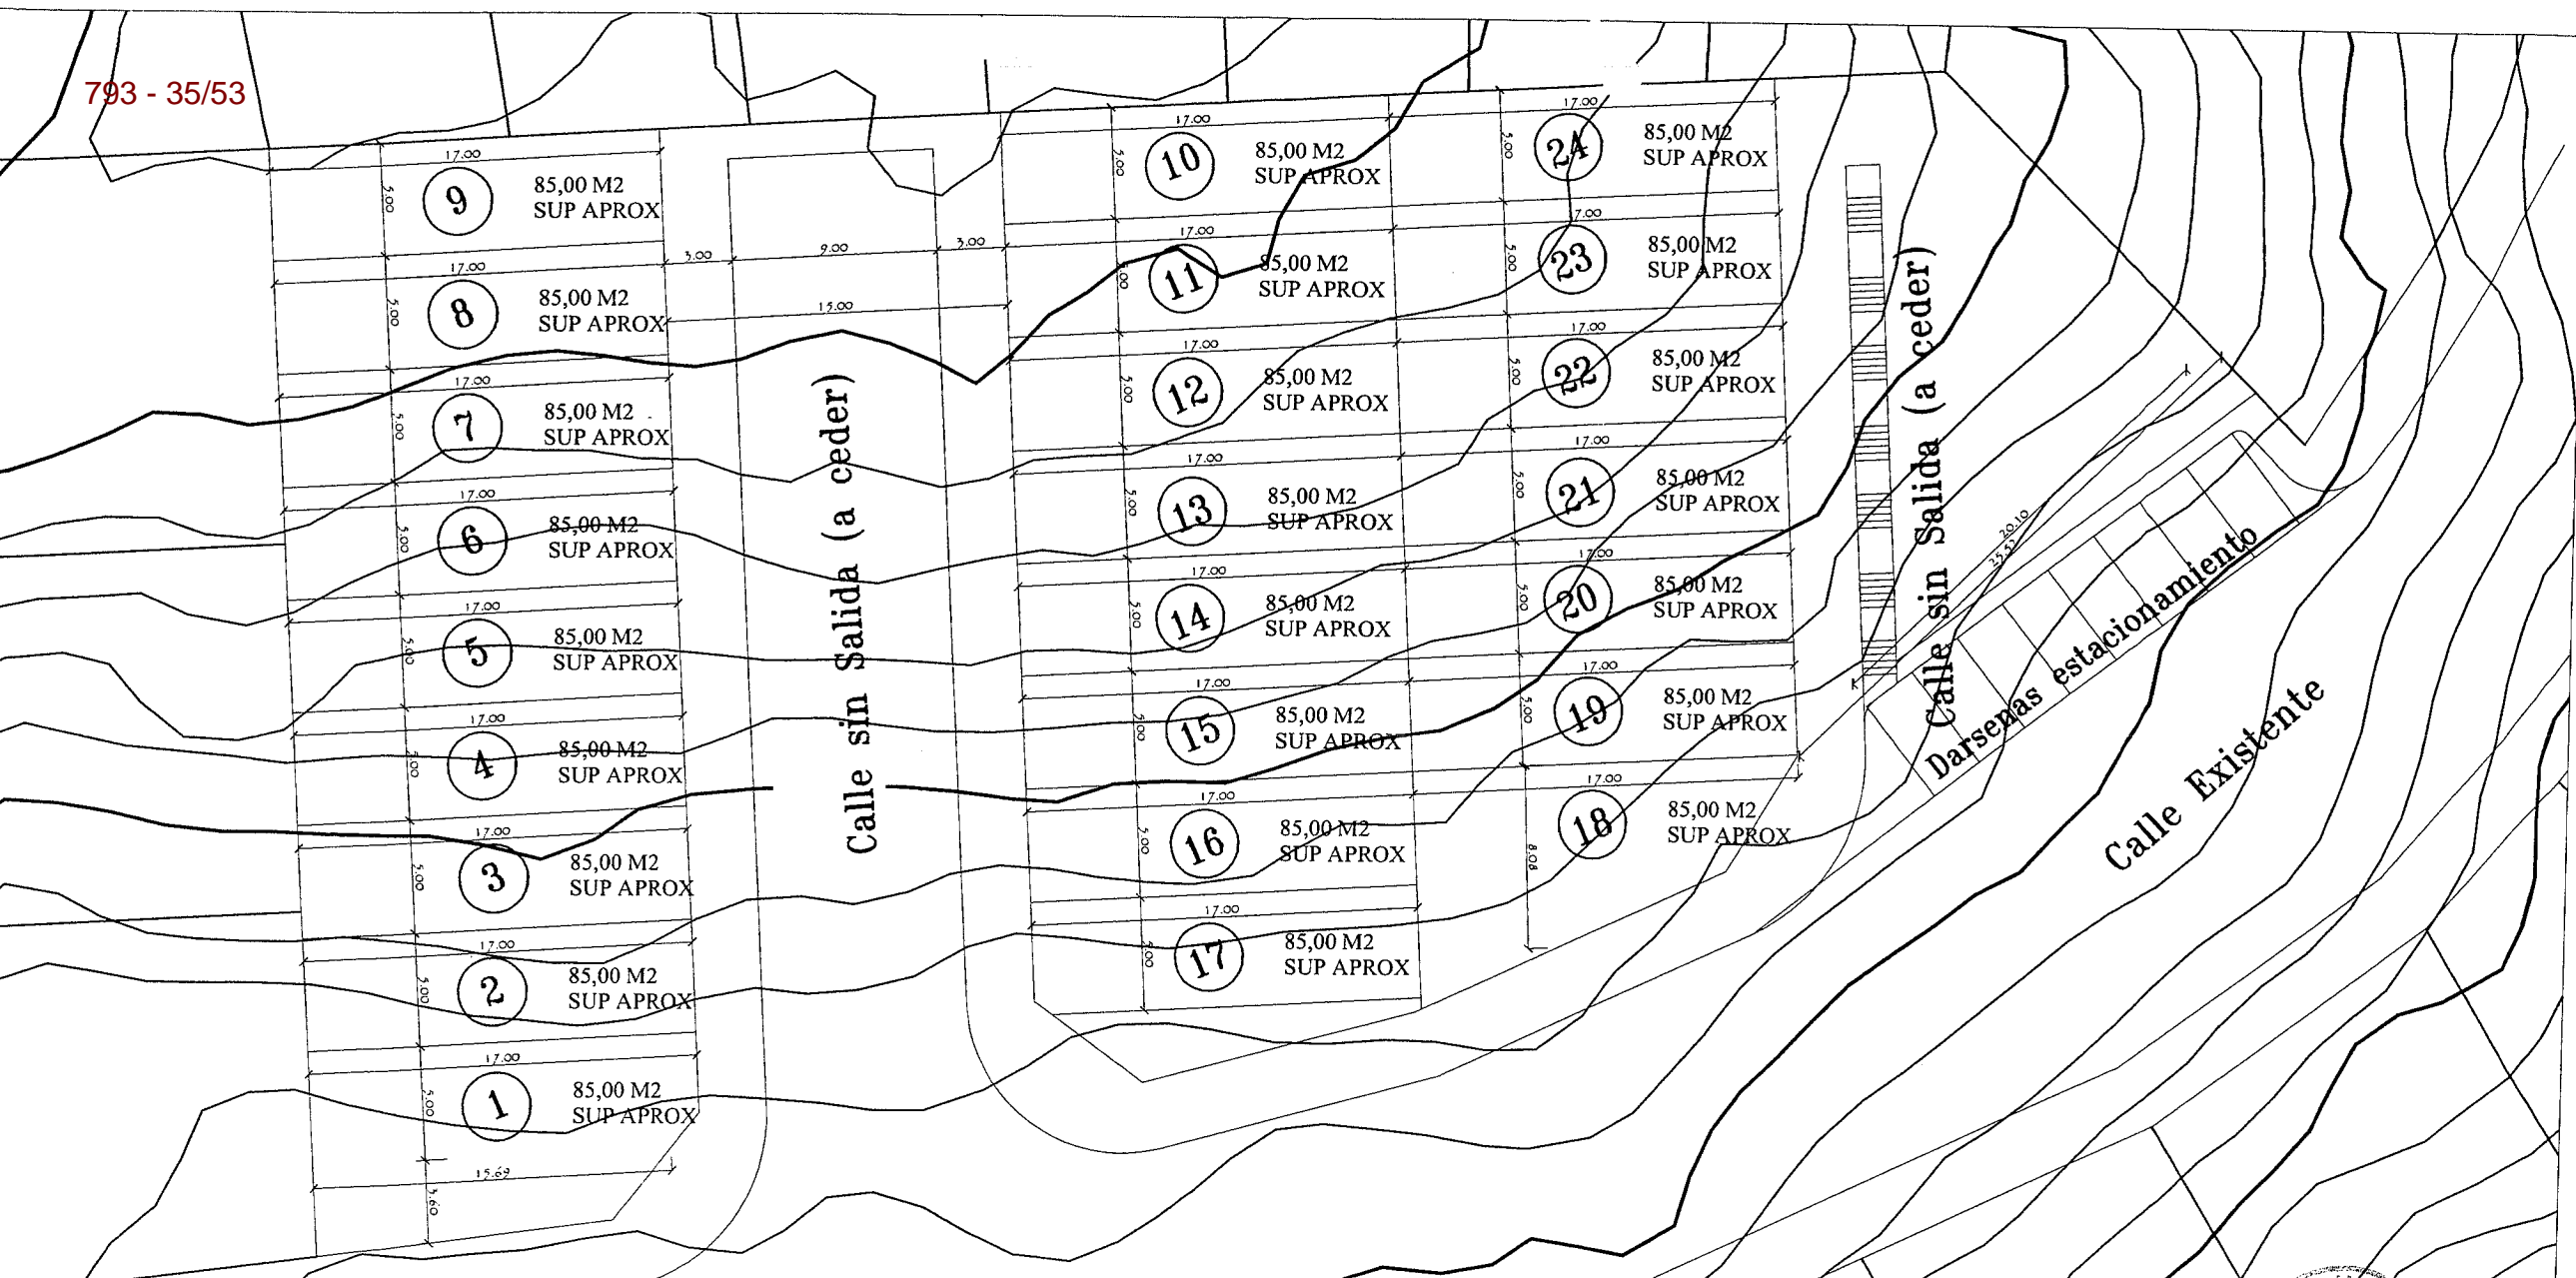 793 - 35/53
17.00
5.00
9
85,00 M2
SUP APROX
17.00
5.00
8
85,00 M2
SUP APROX
17.00
5.00
7
85,00 M2
SUP APROX
17.00
5.00
6
85,00 M2
SUP APROX
17.00
5.00
5
85,00 M2
SUP APROX
17.00
5.00
4
85,00 M2
SUP APROX
17.00
5.00
3
85,00 M2
SUP APROX
17.00
5.00
2
85,00 M2
SUP APROX
17.00
5.00
1
85,00 M2
SUP APROX
15.69
3.00
9.00
3.00
15.00
Calle sin Salida (a ceder)
17.00
5.00
10
85,00 M2
SUP APROX
17.00
5.00
11
85,00 M2
SUP APROX
17.00
5.00
12
85,00 M2
SUP APROX
17.00
5.00
13
85,00 M2
SUP APROX
17.00
5.00
14
85,00 M2
SUP APROX
17.00
5.00
15
85,00 M2
SUP APROX
17.00
5.00
16
85,00 M2
SUP APROX
17.00
5.00
17
85,00 M2
SUP APROX
17.00
5.00
24
85,00 M2
SUP APROX
17.00
5.00
23
85,00 M2
SUP APROX
17.00
5.00
22
85,00 M2
SUP APROX
17.00
5.00
21
85,00 M2
SUP APROX
17.00
5.00
20
85,00 M2
SUP APROX
17.00
5.00
19
85,00 M2
SUP APROX
17.00
8.08
18
85,00 M2
SUP APROX
Calle sin Salida (a ceder)
20.10
Darsenas estacionamiento
Calle Existente